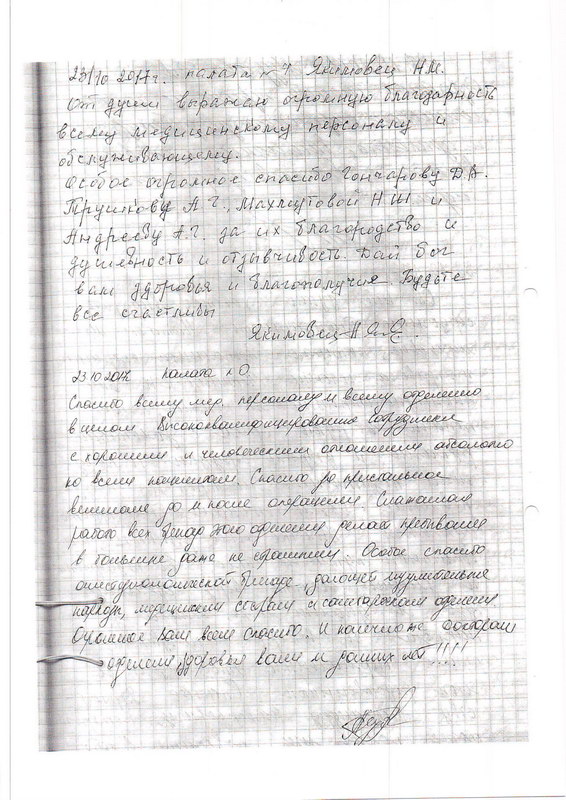 23/10 2017г. палата № 4 Якимовец Н.М.
От души выражаю огромную благодарность
всему медицинскому персоналу и
обслуживающему.
Особое огромное спасибо Гончарову Д.А.
Трушкову А.Г., Н.Ш. и
Андрееву А.Г. за их благородство и
душевность и отзывчивость. Дай бог
вам здоровья и благополучия Будьте
все счастливы
Якимовец
23 10 2017 палата
Спасибо всему мед. персоналу и всему отделению
в целом Высококвалифицированные сотрудники
с хорошим и человеческим отношением абсолютно
ко всем пациентам. Спасибо за пристальное
внимание до и после операции. Слаженная
работа всех этого отделения, делает пребывание
в больнице даже не страшным. Особое спасибо
анестезиологической бригаде, дающей изумительный
наркоз, медицинским сестрам и санитарочкам отделения
Огромное Вам всем спасибо. И конечно же докторам
отделения, здоровья вам и долгих лет!!!!